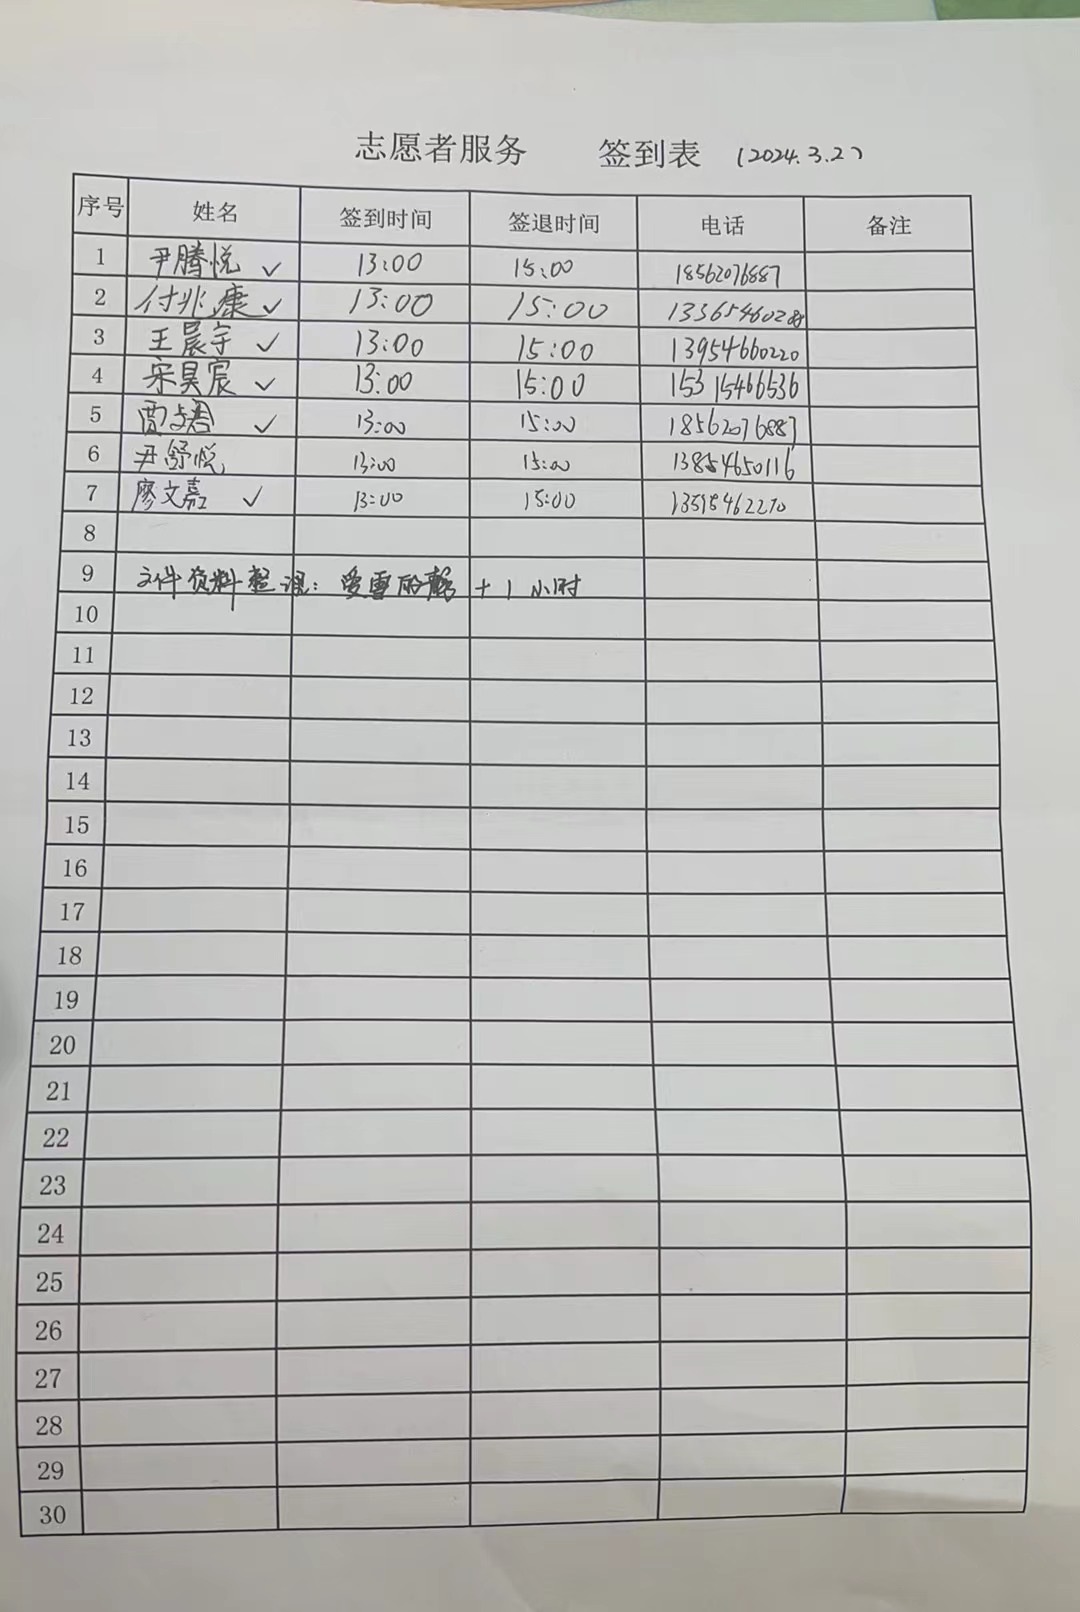 志愿者服务 签到表 (2024.3.2)
序号 姓名 签到时间 签退时间 电话 备注
1 尹腾悦 ✓ 13:00 15:00 18562076887
2 付兆康 ✓ 13:00 15:00
3 王晨宇 ✓ 13:00 15:00 13954660220
4 宋昊宸 ✓ 13:00 15:00 15315466536
5 贾 ✓ 13:00 15:00 18562076887
6 尹舒悦 13:00 15:00 13854650116
7 廖文嘉 ✓ 13:00 15:00
8
9 文件资料整理: 爱雪的 +1小时
10
11
12
13
14
15
16
17
18
19
20
21
22
23
24
25
26
27
28
29
30